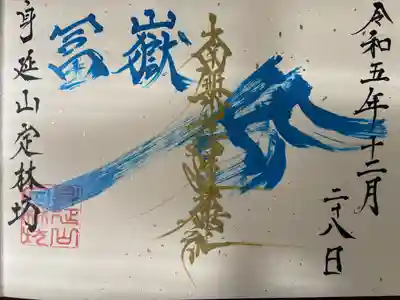 令和五年十二月
二十八日
南無妙法蓮華経
冨嶽
身延山定林坊